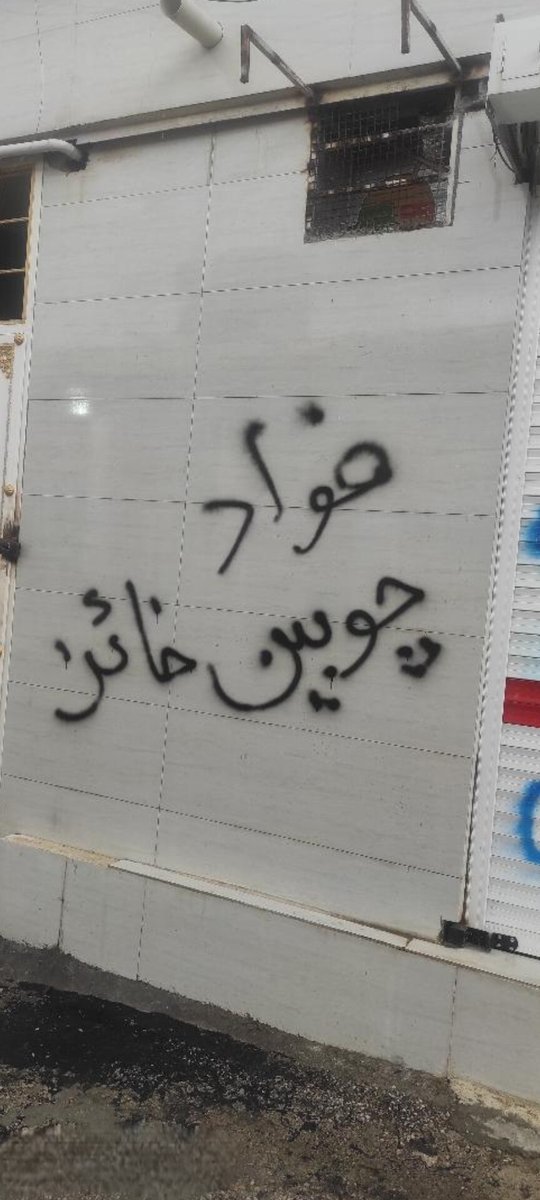 فواد
چوبین خائن